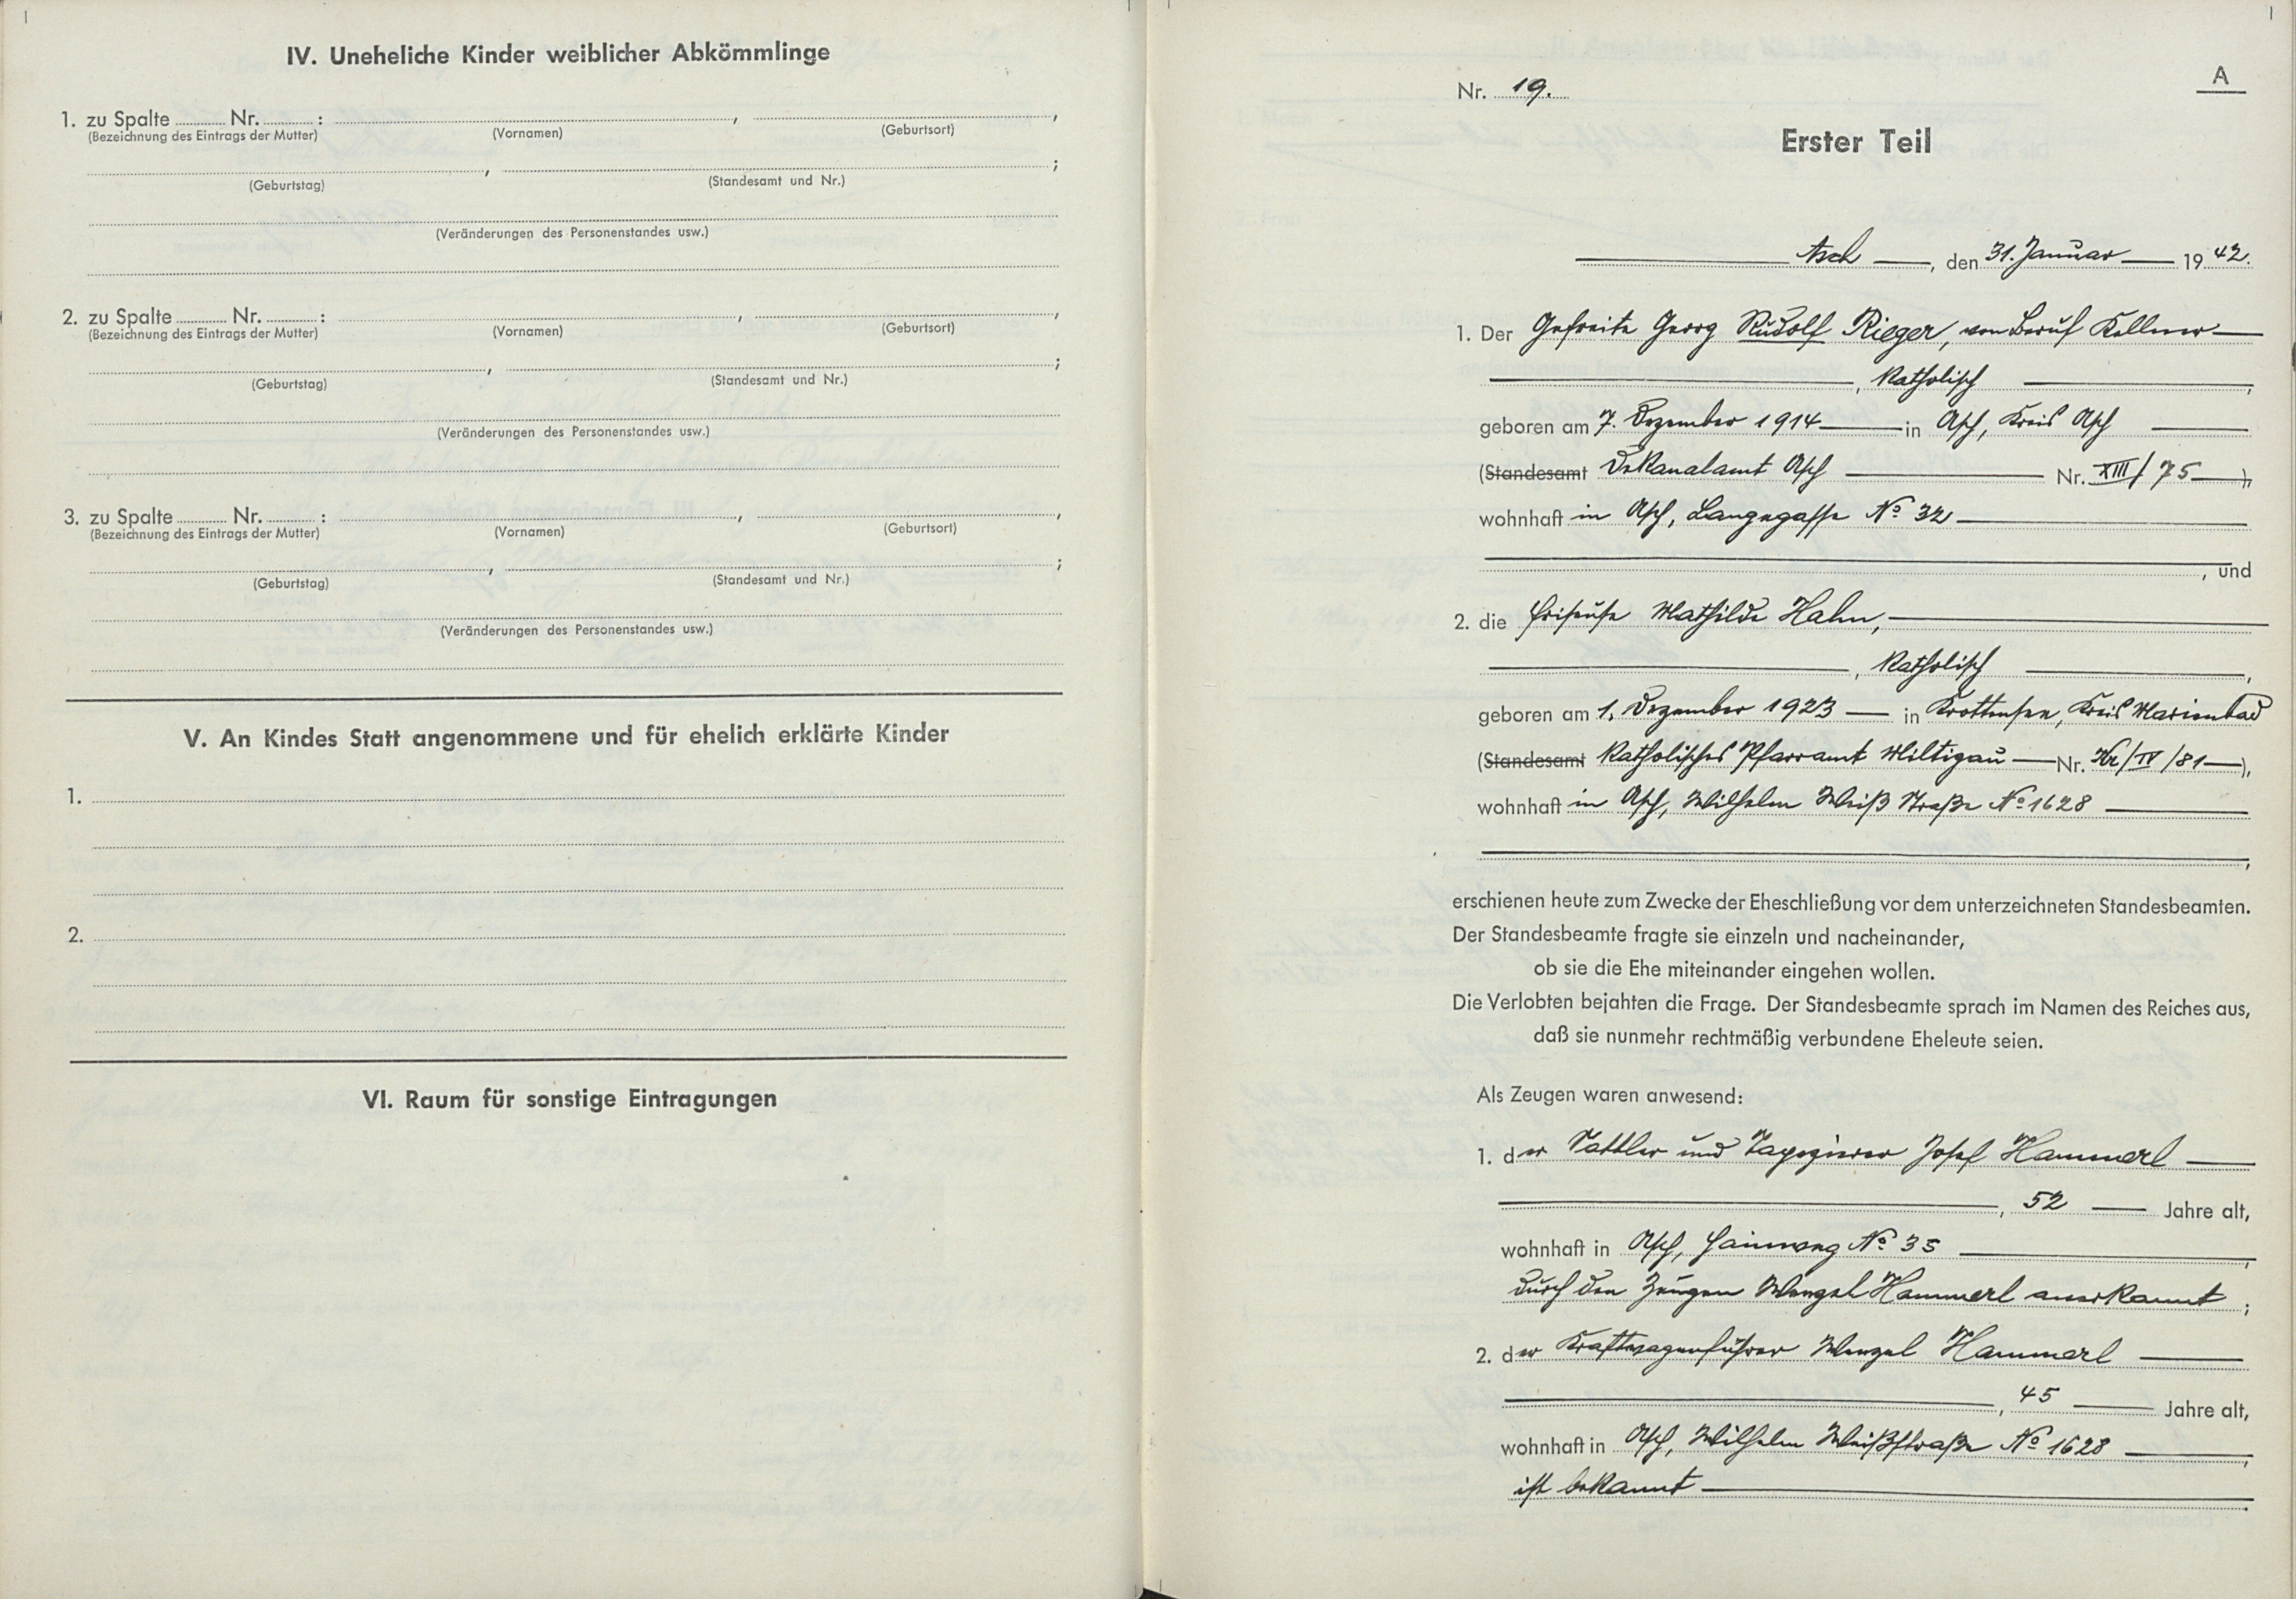 IV. Uneheliche Kinder weiblicher Abkömmlinge
1. zu Spalte Nr. : , ,
(Bezeichnung des Eintrags der Mutter) (Vornamen) (Geburtsort)
, ;
(Geburtstag) (Standesamt und Nr.)
(Veränderungen des Personenstandes usw.)
2. zu Spalte Nr. : , ,
(Bezeichnung des Eintrags der Mutter) (Vornamen) (Geburtsort)
, ;
(Geburtstag) (Standesamt und Nr.)
(Veränderungen des Personenstandes usw.)
3. zu Spalte Nr. : , ,
(Bezeichnung des Eintrags der Mutter) (Vornamen) (Geburtsort)
, ;
(Geburtstag) (Standesamt und Nr.)
(Veränderungen des Personenstandes usw.)
V. An Kindes Statt angenommene und für ehelich erklärte Kinder
1.
2.
VI. Raum für sonstige Eintragungen
A
Nr. 19.
Erster Teil
Asch, den 31. Januar 1942.
1. Der Gefreite Georg Rudolf Rieger, von Beruf Kellner
, katholisch ,
geboren am 7. Dezember 1914 in Asch, Kreis Asch
(Standesamt Dekanalamt Asch Nr. XIII/75 ),
wohnhaft in Asch, Langegasse No 32
, und
2. die Friseuse Mathilde Hahn,
, katholisch ,
geboren am 1. Dezember 1923 in Krottensee, Kreis Marienbad
(Standesamt Katholisches Pfarramt Miltigau Nr. Kr/IV/81 ),
wohnhaft in Asch, Wilhelm Weiß Straße No 1628
,
erschienen heute zum Zwecke der Eheschließung vor dem unterzeichneten Standesbeamten.
Der Standesbeamte fragte sie einzeln und nacheinander,
ob sie die Ehe miteinander eingehen wollen.
Die Verlobten bejahten die Frage. Der Standesbeamte sprach im Namen des Reiches aus,
daß sie nunmehr rechtmäßig verbundene Eheleute seien.
Als Zeugen waren anwesend:
1. der Sattler und Tapezierer Josef Hammerl
, 52 Jahre alt,
wohnhaft in Asch, Hainweg No 35 ,
durch den Zeugen Wenzel Hammerl anerkannt ;
2. der Kraftwagenführer Wenzel Hammerl
, 45 Jahre alt,
wohnhaft in Asch, Wilhelm Weißstraße No 1628 ,
ist bekannt .